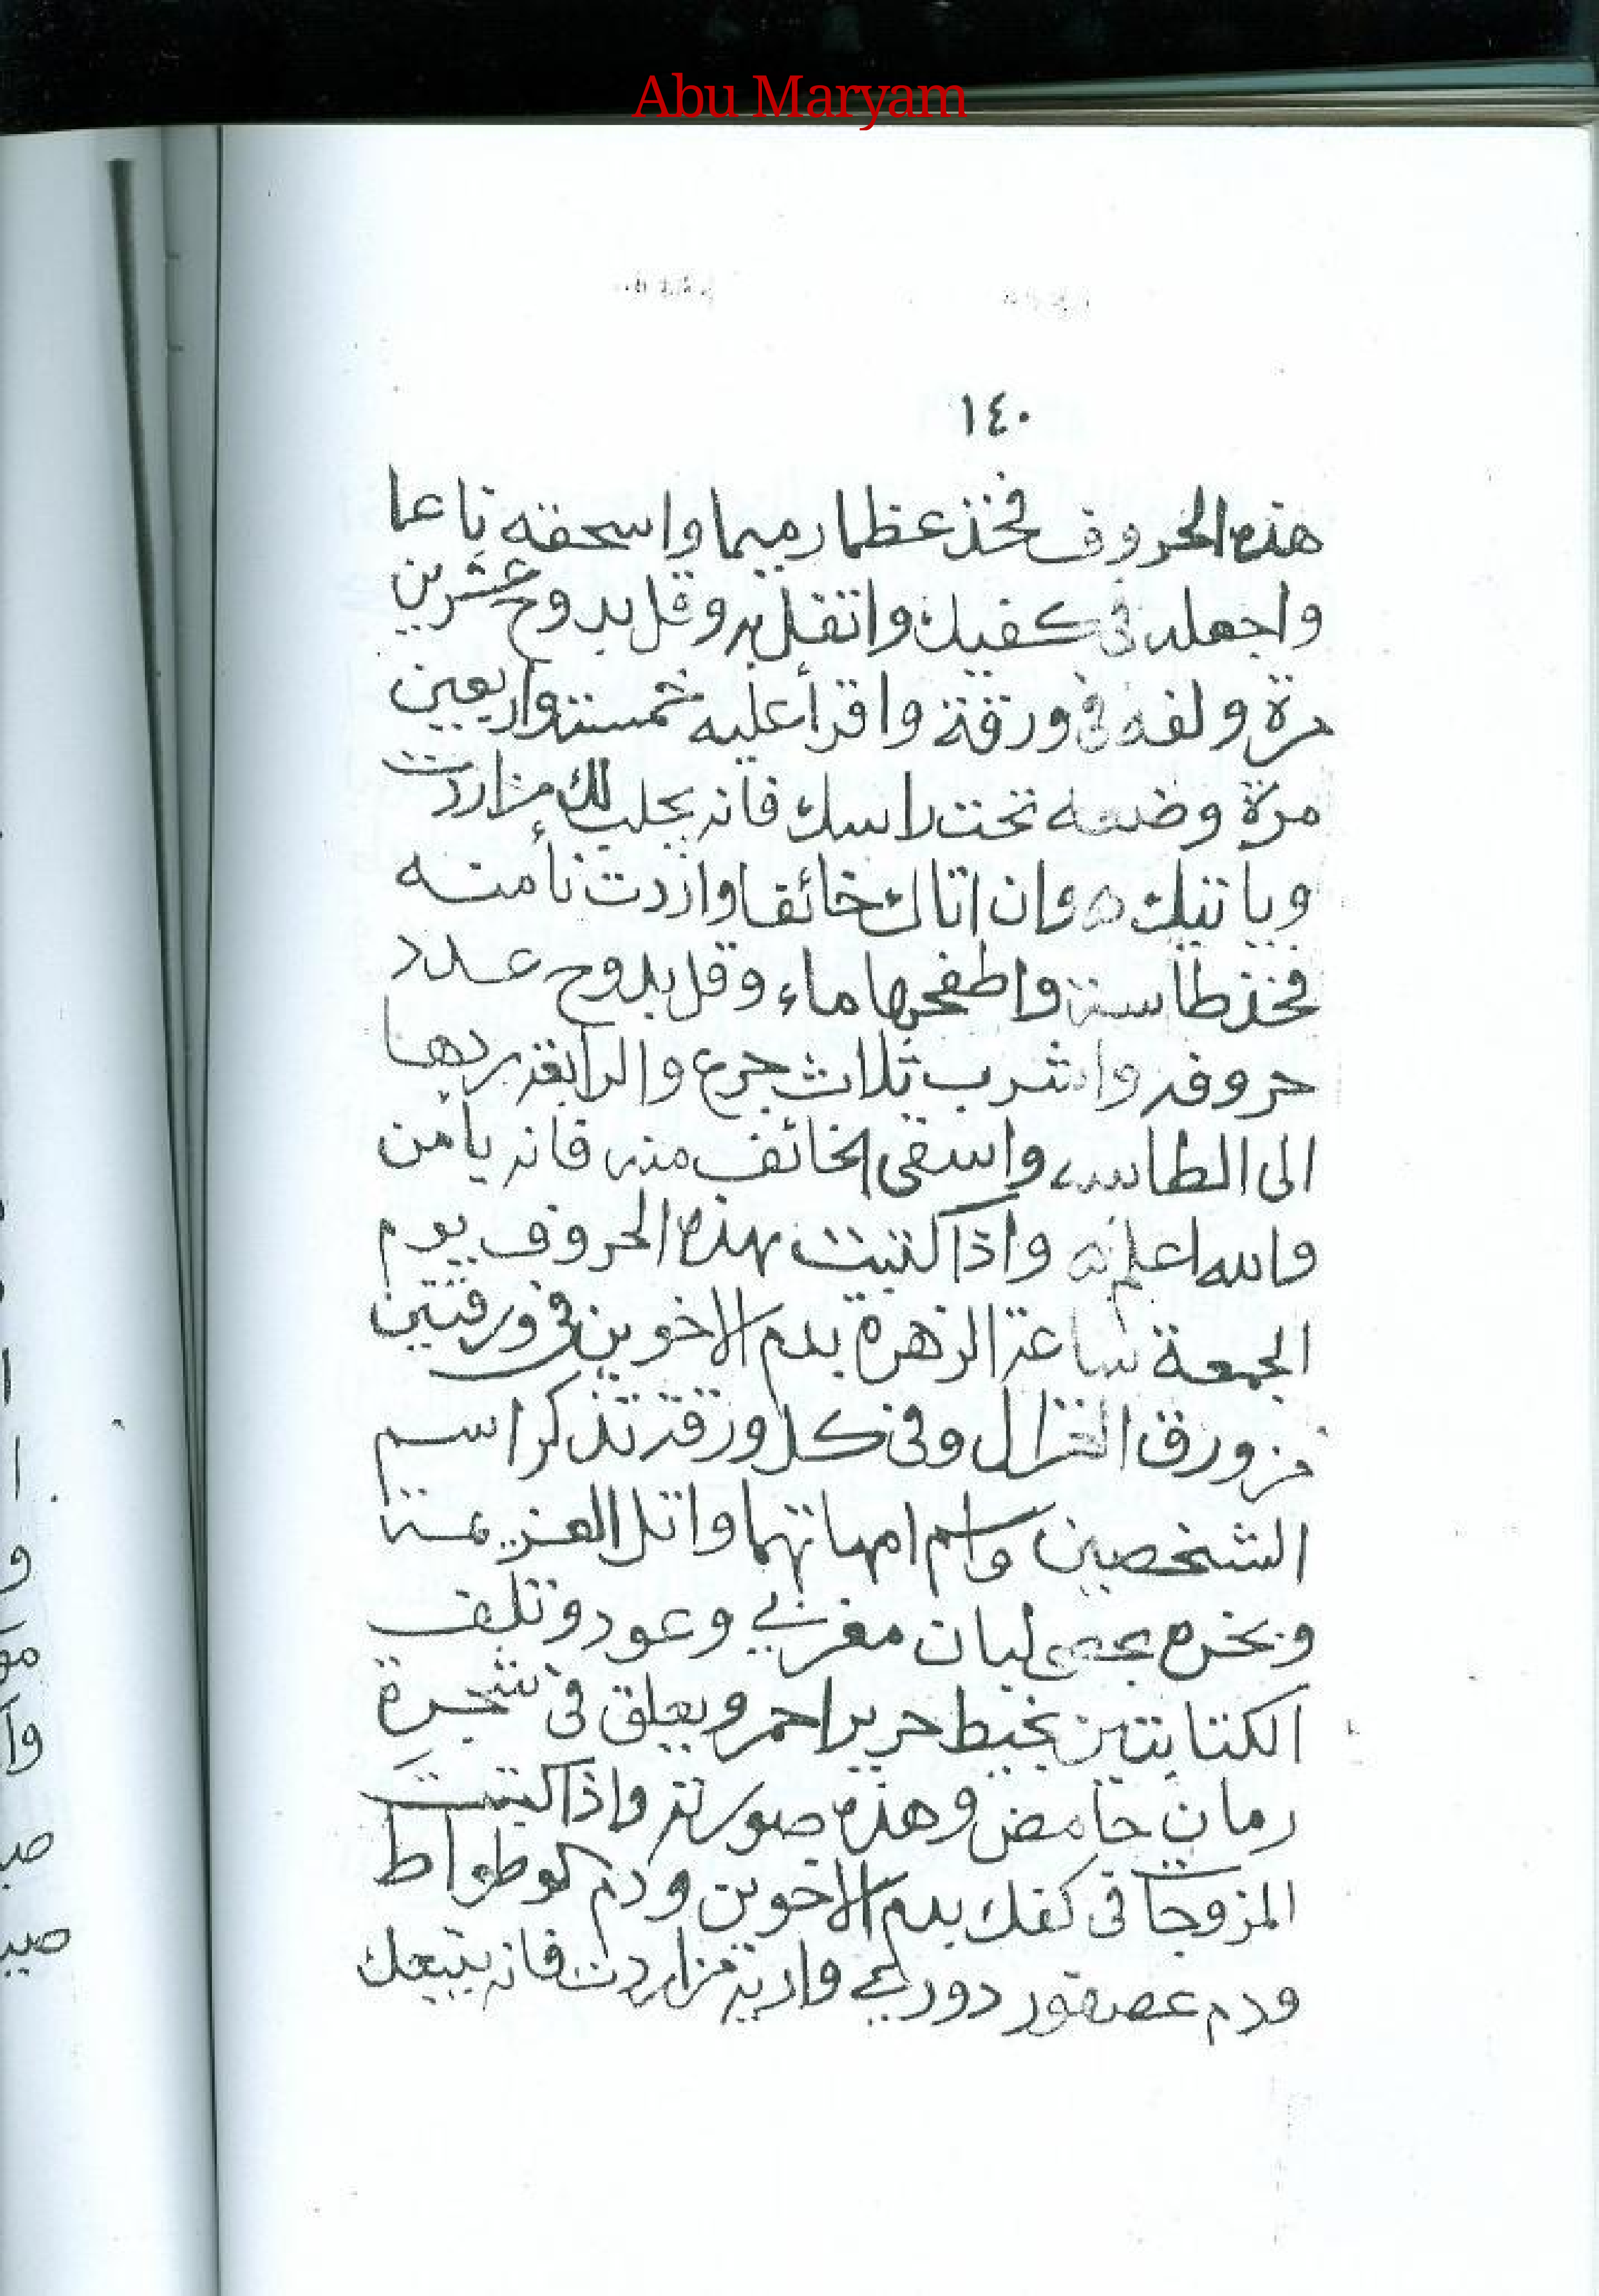 Abu Maryam
١٤٠
هذه الحروف فخذ عظما رميما واسحقه ناعما
واجعله فى كفيك واتفل به وقل بدوح عشرين
مرة ولفه فى ورقة واقرأ عليه خمسة واربعين
مرة وضعه تحت راسك فانه يجلب لك من اردت
وياتيك ه وان اتاك خائفا واردت تأمنه
فخذ طاسة واطفحها ماء وقل بدوح عدد
حروفه واشرب ثلاث جرع والرابعة ردها
الى الطاسه واسقى الخائف منه فانه يامن
والله اعلم واذا كتبت بهذه الحروف يوم
الجمعة ساعة الزهرة بدم الاخوين فى ورقتين
من ورق الغزال وفى كل ورقة تذكر اسم
الشخصين واسم امهاتهما واتل العزيمة
وبخره بحصى لبان مغربي وعود وتلف
الكتابتين بخيط حرير احمر ويعلق فى شجرة
رمان حامض وهذه صورته واذا كتبت
المزوجات فى كفك بدم الاخوين ودم الوطواط
ودم عصفور دوري واريته من اردت فانه يتبعك